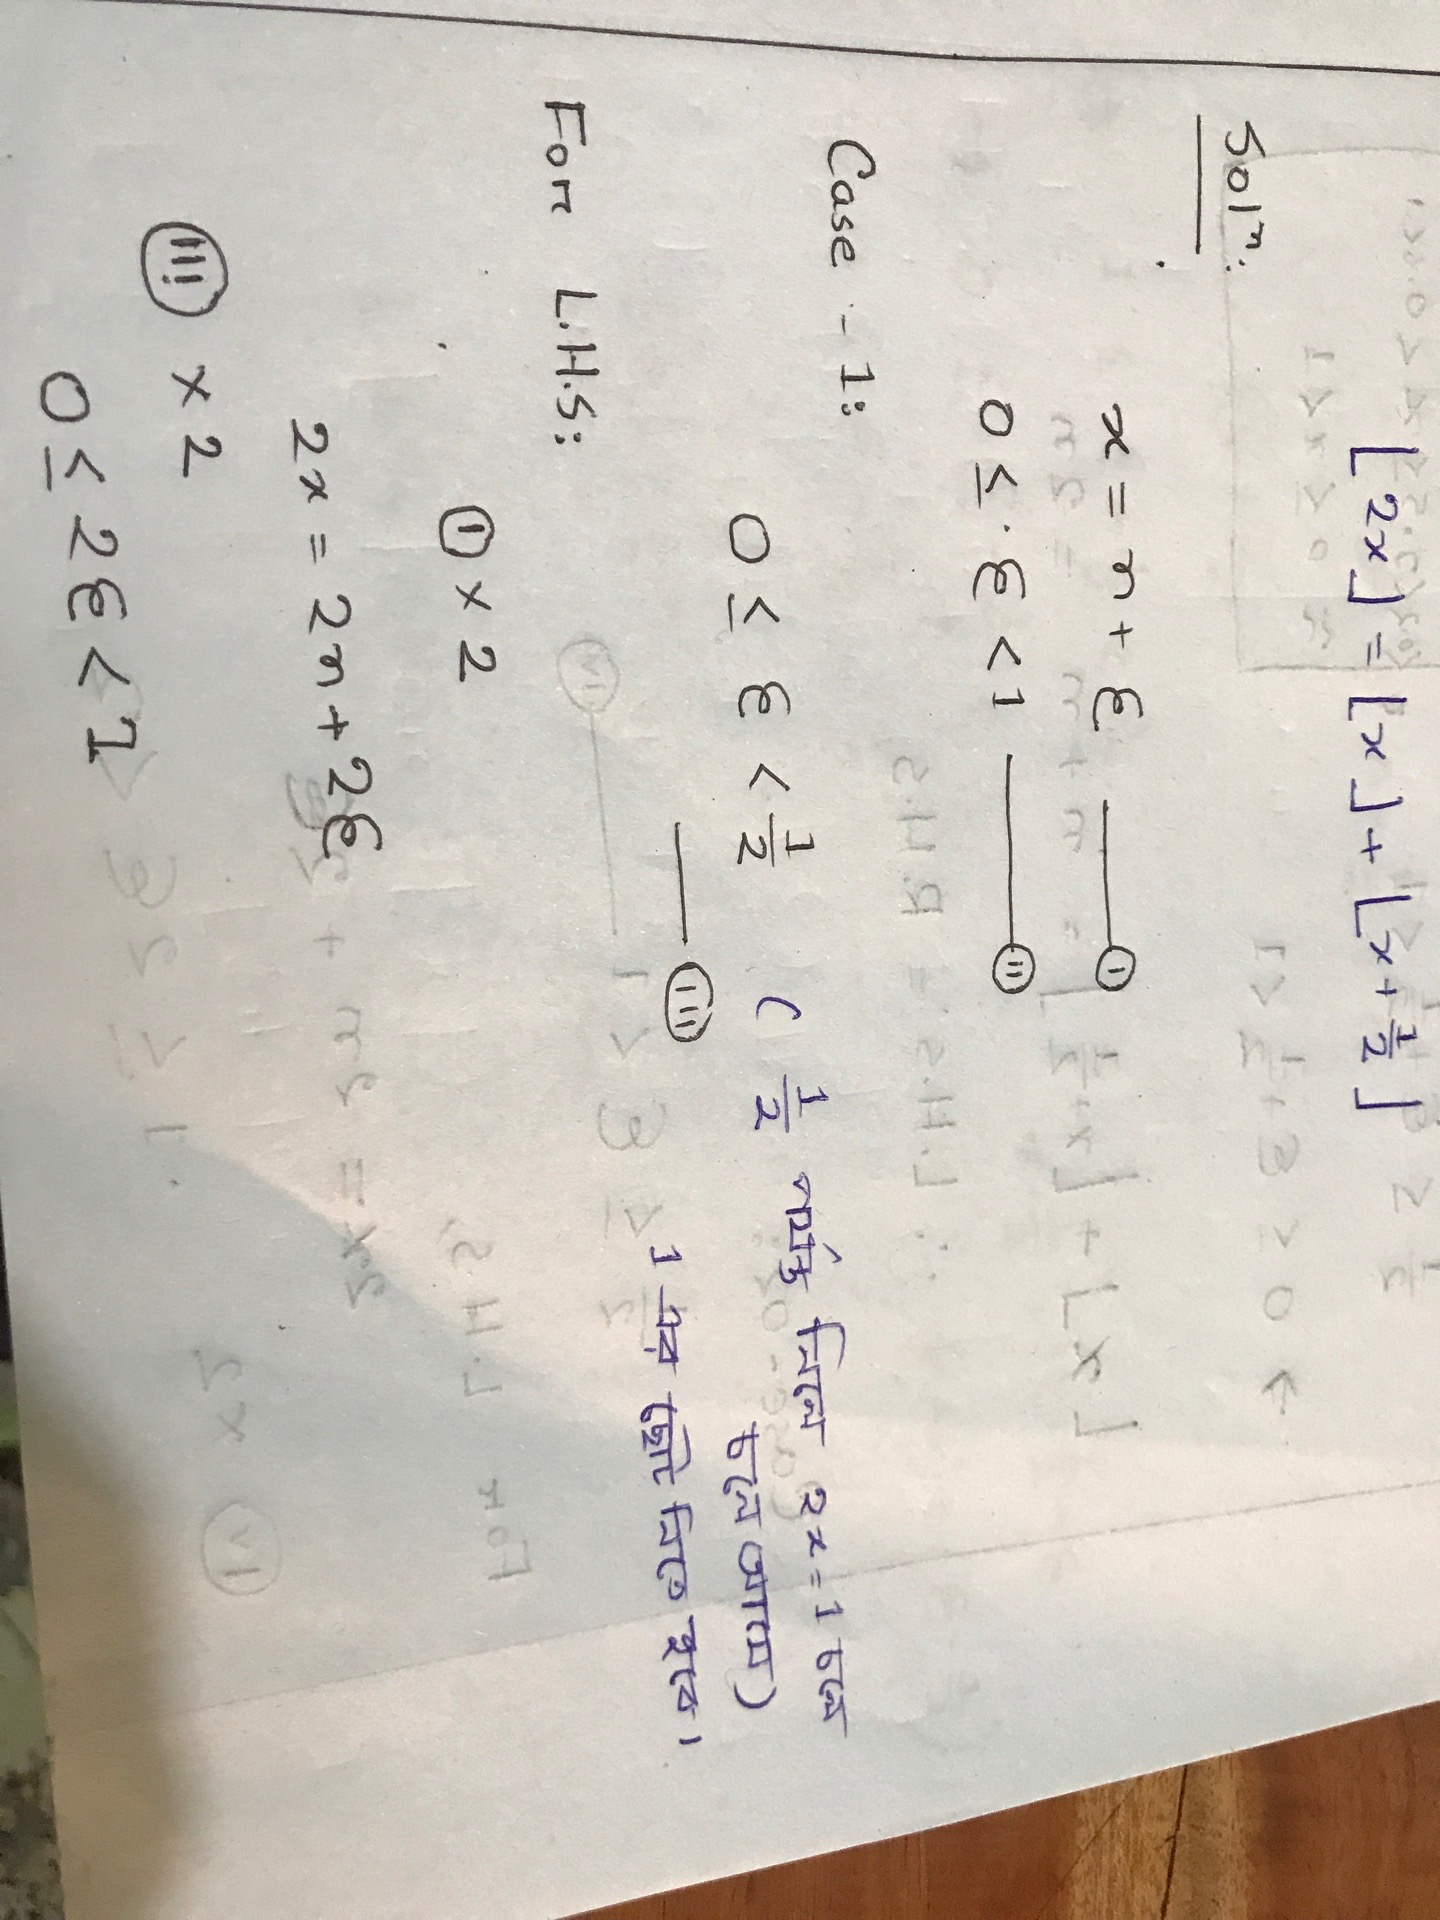 ⌊2x⌋ = ⌊x⌋ + ⌊x + 1/2⌋
Solⁿ:
x = n + ε ——— (i)
0 ≤ ε < 1 ——— (ii)
Case - 1:
0 ≤ ε < 1/2 ( 1/2 পর্যন্ত নিলে 2x = 1 চলে
চলে আসে)
——— (iii)
1 এর ছোট নিতে হবে।
For L.H.S:
(i) × 2
2x = 2n + 2ε
(iii) × 2
0 ≤ 2ε < 1